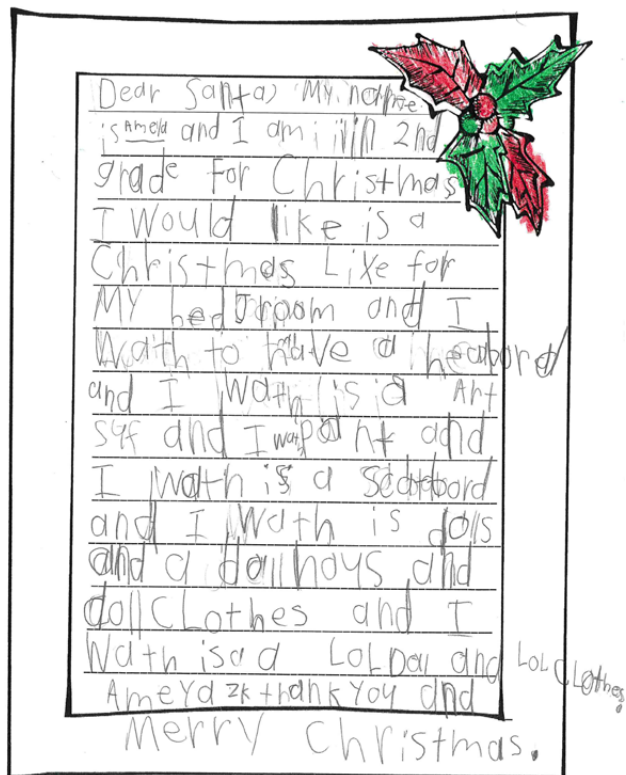 Dear Santa, My name
is Ameya and I am in 2nd
grade For Christmas
I Would like is a
Christmas Lixe for
MY bedroom and I
Wath to have a heabord
and I Wath is a Art
syf and I wath paint and
I wath is a scatbord
and I Wath is dolls
and a dollhoys and
dollCLothes and I
Wath is a a LoL Dal and LoL CLothes.
Ameya 2k thank You and
Merry Christmas.